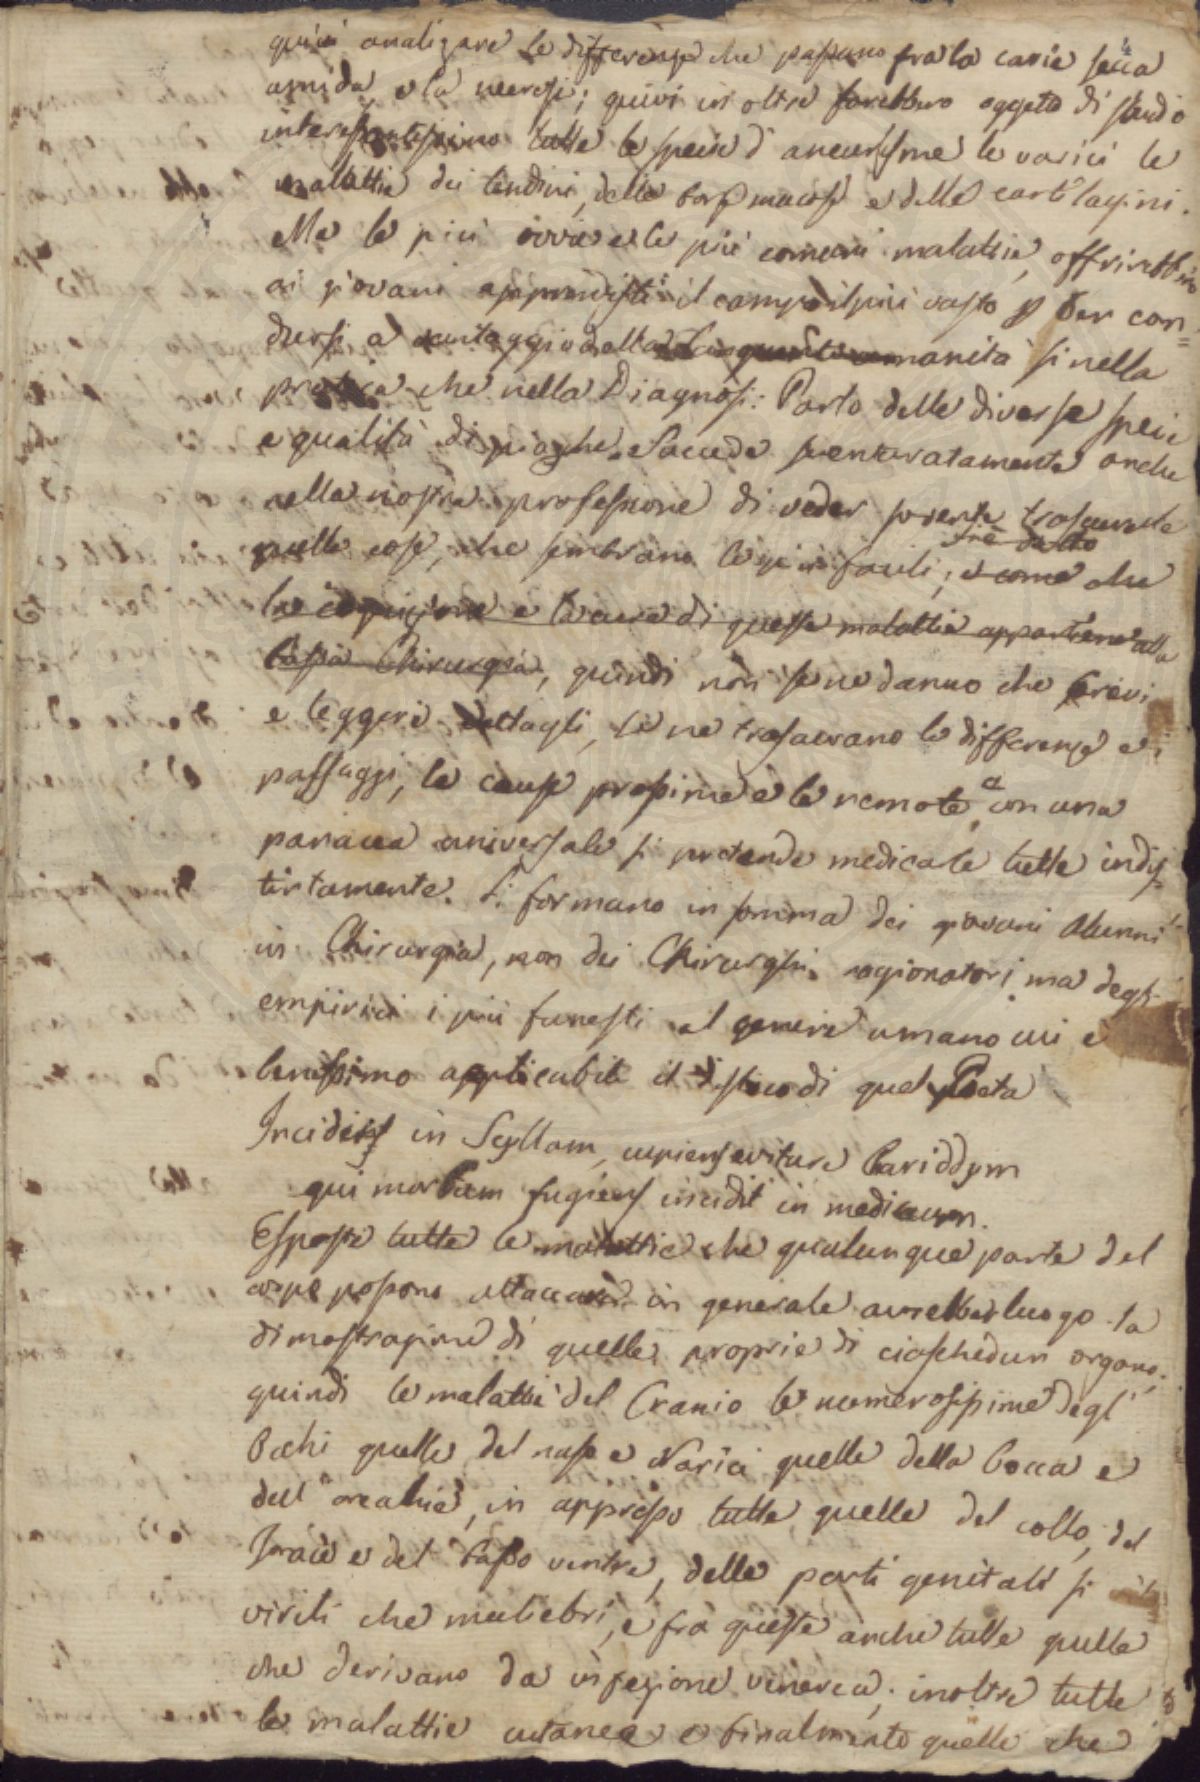 quivi analizare le differenze che passano fra la carie secca
umida, e la necrosi; quivi in oltre sarebbero oggetto di studio
interessantissimo tutte le specie d'aneurisme le varici le
malattie dei tendini, delle borse mucose e delle cartilagini.
Ma le più ovvie e le più comuni malattie, offrirebbero
ai giovani apprendisti il campo il più vasto per con=
dursi a vantaggio della languente umanità si nella
pratica che nella Diagnosi: Parlo delle diverse specie
e qualità di piaghe. Succede sventuratamente anche
nella nostra professione di veder sovente trascurate
quelle cose, che sembrano le più facili; e come che
la cognizione e la cura di queste malattie appartiene alla
bassa Chirurgia, quindi non se ne danno che brevi
e leggeri dettagli, se ne trascurano le differenze e i
passaggi, le cause prossime e le remote, e con una
panacea universale si pretende medicate tutte indis=
tintamente. Si formano in somma dei giovani Alunni
in Chirurgia, non dei Chirurghi ragionatori, ma degli
empirici i più funesti al genere umano cui è
benissimo applicabile il distico di quel Poeta
Incidens in Scyllam, cupiens evitare Cariddym
qui morbum fugiens incidit in medicum.
Esposte tutte le malattie che qualunque parte del
corpo possono attaccare in generale avrebbe luogo la
dimostrazione di quelle proprie di ciaschedun organo,
quindi le malattie del Cranio le numerosissime degl'
Occhi quelle del naso e Narici quelle della bocca e
dell'orecchie, in appresso tutte quelle del collo, del
Torace e del basso ventre, delle parti genitali si
virili che muliebri, e frà queste anche tutte quelle
che derivano da infezione venerea; inoltre tutte
le malattie cutanee e finalmente quelle che